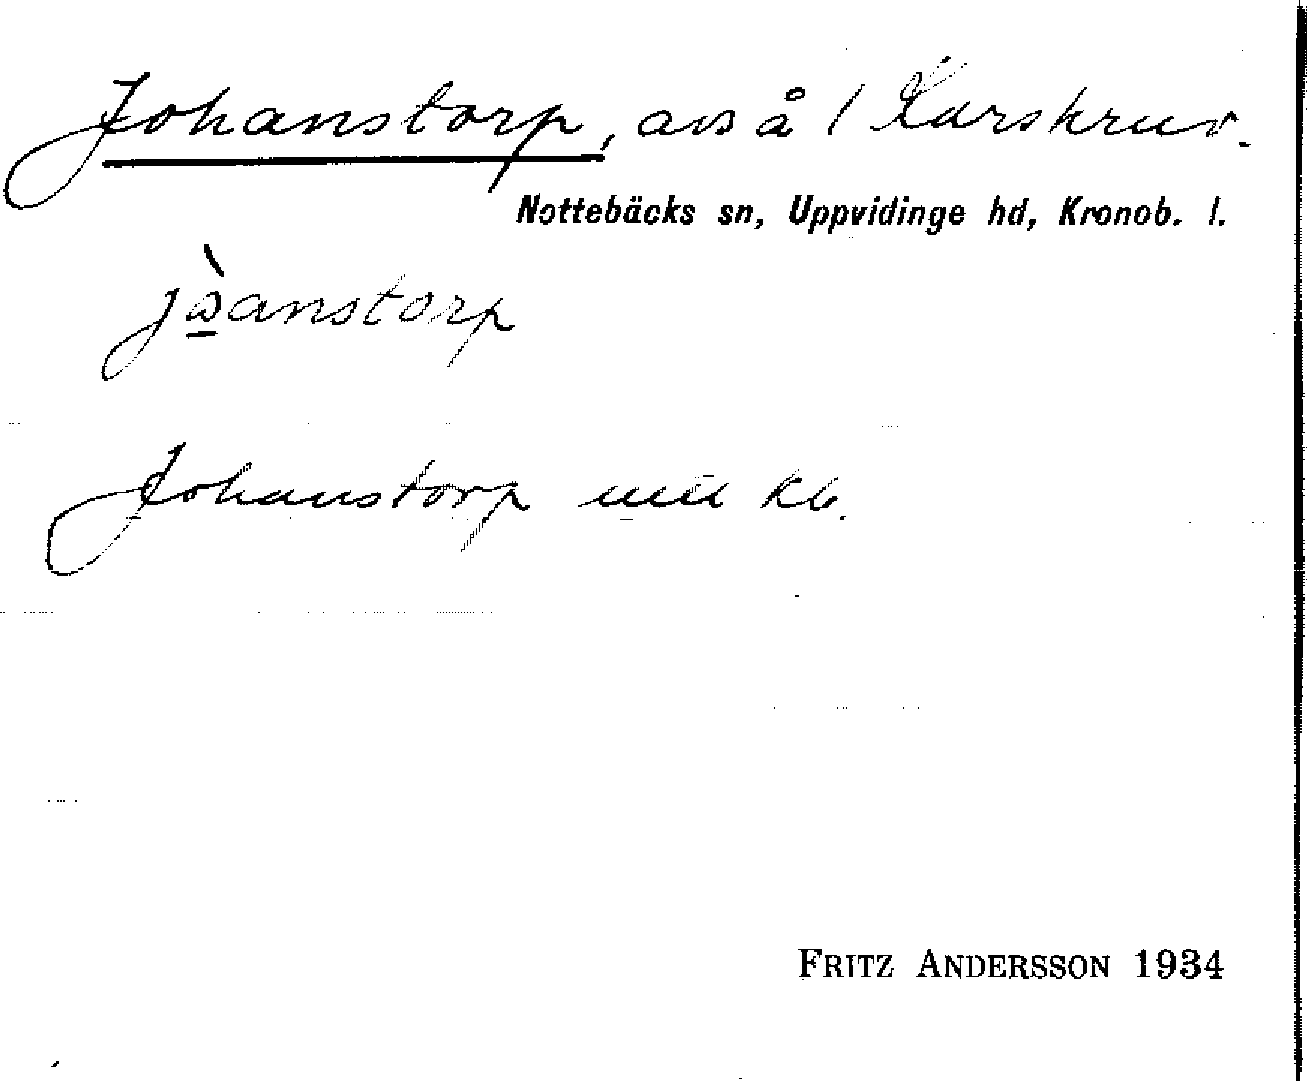 Johanstorp, avs å 1 Karskruv.
Nottebäcks sn, Uppvidinge hd, Kronob. l.
anstorp
Johanstorp kb.
FRITZ ANDERSSON 1934